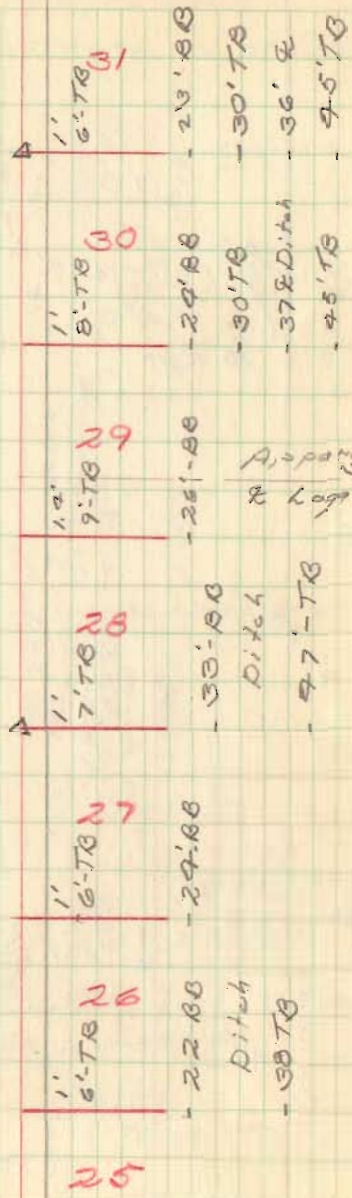 31
1'
6'-TB
- 23' BB
- 30' TB
- 36' ℄
- 45' TB
30
1'
8'-TB
- 24' BB
- 30' TB
- 37 ℄ Ditch
- 45' TB
29
9'-TB
- 26'-BB
28
1'
7' TB
- 33'-BB
Ditch
- 47'-TB
27
1'
6'-TB
- 24'-BB
26
1'
6'-TB
- 22 BB
Ditch
- 38 TB
25